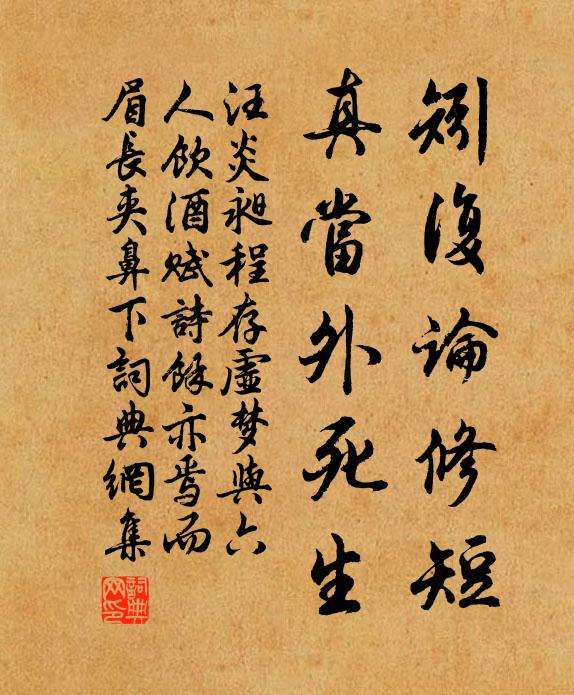 矧復論修短
真當外死生
汪炎昶程存虛梦與六
人飲酒賦詩餘亦焉而
眉長夾鼻下詞典網集
詞典
网印